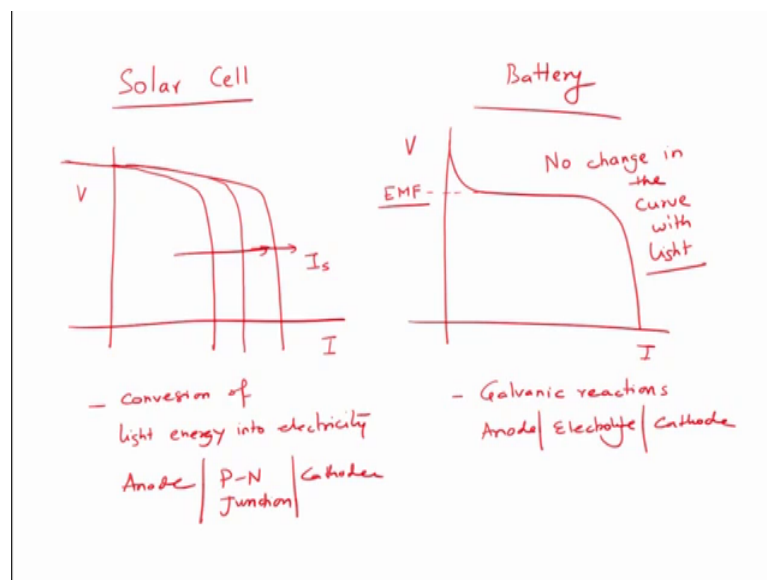 Solar Cell
V
Is
I
- Convesion of
light energy into electricity
Anode | P-N | Cathode
Junction
Battery
V
EMF
No change in
the
curve
with
light
I
- Galvanic reactions
Anode | Electrolyte | Cathode